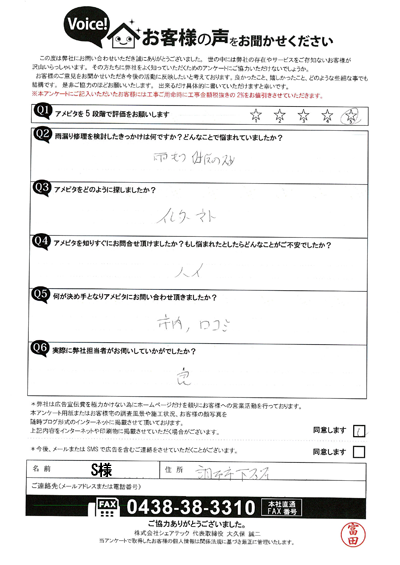 Voice!
お客様の声をお聞かせください
この度は弊社にお問い合わせいただき誠にありがとうございました。世の中には弊社の存在やサービスをご存知ないお客様が
沢山いらっしゃいます。その方たちに弊社をよく知っていただくためのアンケートにご協力いただけないでしょうか。
お客様のご意見をお聞かせいただき今後の活動に反映したいと考えております。良かったこと、嬉しかったこと、どのような些細な事でも
結構です。是非ご協力のほどお願いいたします。出来るだけ具体的に書いていただけますと幸いです。
※本アンケートにご記入いただいたお客様には工事ご用命時に工事金額税抜きの2%をお値引きさせていただきます。
Q1 アメピタを5段階で評価をお願いします
Q2 雨漏り修理を検討したきっかけは何ですか?どんなことで悩まれていましたか?
Q3 アメピタをどのように探しましたか?
Q4 アメピタを知りすぐにお問合せ頂けましたか?もし悩まれたとしたらどんなことがご不安でしたか?
Q5 何が決め手となりアメピタにお問い合わせ頂きましたか?
市内,口コミ
Q6 実際に弊社担当者がお伺いしていかがでしたか?
良
＊弊社は広告宣伝費を極力かけない為にホームページだけを頼りにお客様への営業活動を行っております。
本アンケート用紙またはお客様宅の調査風景や施工状況、お客様の顔写真を
随時ブログ形式のインターネットに掲載させて頂いております。
上記内容をインターネットや印刷物に掲載させていただく場合がございます。
同意します
＊今後、メールまたはSMSで広告を含むご連絡をさせていただくことがございます。
同意します
名前 S様 住所
ご連絡先(メールアドレスまたは電話番号)
FAX 0438-38-3310 本社直通 FAX番号
ご協力ありがとうございました。
株式会社シェアテック 代表取締役 大久保 誠二
当アンケートで取得したお客様の個人情報は関係法規に基づき厳正に管理いたします。
富田